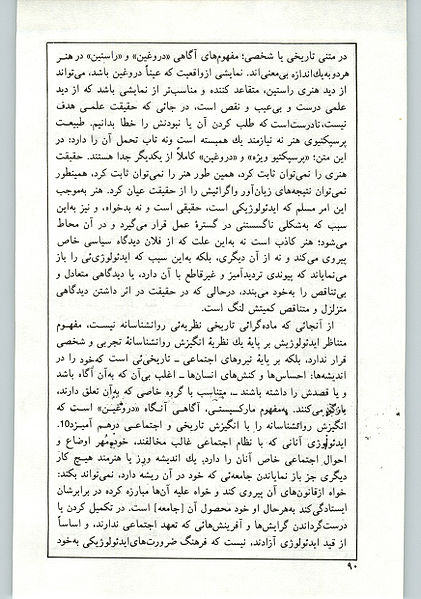 در متنی تاریخی یا شخصی؛ مفهوم‌های آگاهی «دروغین» و «راستین» در هنر
هردو به‌یك‌اندازه بی‌معنی‌اند. نمایشی ازواقعیت که عیناً دروغین باشد، می‌تواند
از دید هنری راستین، متقاعد کننده و مناسب‌تر از نمایشی باشد که از دید
علمی درست و بی‌عیب و نقص است، در جائی که حقیقت علمی هدف
نیست، نادرست‌است که طلب کردن آن یا نبودنش را خطا بدانیم. طبیعت
پرسپکتیوی هنر نه نیازمند یك همبسته است ونه تاب تحمل آن را دارد: در
این متن؛ «پرسپکتیو ویژه» و «دروغین» کاملاً از یکدیگر جدا هستند. حقیقت
هنری را نمی‌توان ثابت کرد، همین طور هنر را نمی‌توان ثابت کرد، همینطور
نمی‌توان نتیجه‌های زیان‌آور واگرائیش را از حقیقت عیان کرد. هنر به‌موجب
این امر مسلم که ایدئولوژیکی است، حقیقی است و نه بدخواه، و نیز به‌این
سبب که به‌شکلی ناگسستنی در گسترهٔ عمل قرار می‌گیرد و در آن محاط
می‌شود؛ هنر کاذب است نه به‌این علت که از فلان دیدگاه سیاسی خاص
پیروی می‌کند و نه از آن دیگری، بلکه به‌این سبب که ایدئولوژی‌ئی را باز
می‌نمایاند که پیوندی تردیدآمیز و غیرقاطع با آن دارد، یا دیدگاهی متعادل و
بی‌تناقص را به‌خود می‌بندد، درحالی که در حقیقت در اثر داشتن دیدگاهی
متزلزل و متناقص کمیتش لنگ است.
از آنجائی که ماده‌گرائی تاریخی نظریه‌ئی روانشناسانه نیست، مفهوم
متناظر ایدئولوژیش بر پایهٔ یك نظریهٔ انگیزش روانشناسانهٔ تجربی و شخصی
قرار ندارد، بلکه بر پایهٔ نیروهای اجتماعی ـ تاریخی‌ئی است که‌خود را در
اندیشه‌ها: احساس‌ها و کنش‌های انسان‌ها ـ اغلب بی‌آن که به‌آن آگاه باشد
و یا قصدش را داشته باشند ـ، متناسب با گروه خاصی که به‌آن تعلق دارند،
بازگو می‌کنند. به‌مفهوم مارکسیستی، آگاهی آنگاه «دروغین» است که
انگیزش روانشناسانه را با انگیزش تاریخی و اجتماعی درهم آمیزد10.
ایدئولوژی آنانی که با نظام اجتماعی غالب مخالفند، خود مُهر اوضاع و
احوال اجتماعی خاص آنان را دارد. یك اندیشه ورز یا هنرمند هیچ کار
دیگری جز باز نمایاندن جامعه‌ئی که خود در آن ریشه دارد، نمی‌تواند بکند:
خواه ازقانون‌های آن پیروی کند و خواه علیه آن‌ها مبارزه کرده در برابرشان
ایستادگی‌کند به‌هرحال او خود محصول آن [جامعه] است. در تکمیل کردن یا
درست‌گرداندن گرایش‌ها و آفرینش‌هائی که تعهد اجتماعی ندارند، و اساساً
از قید ایدئولوژی آزادند، نیست که فرهنگ ضرورت‌های‌ایدئولوژیکی به‌خود
۹۰